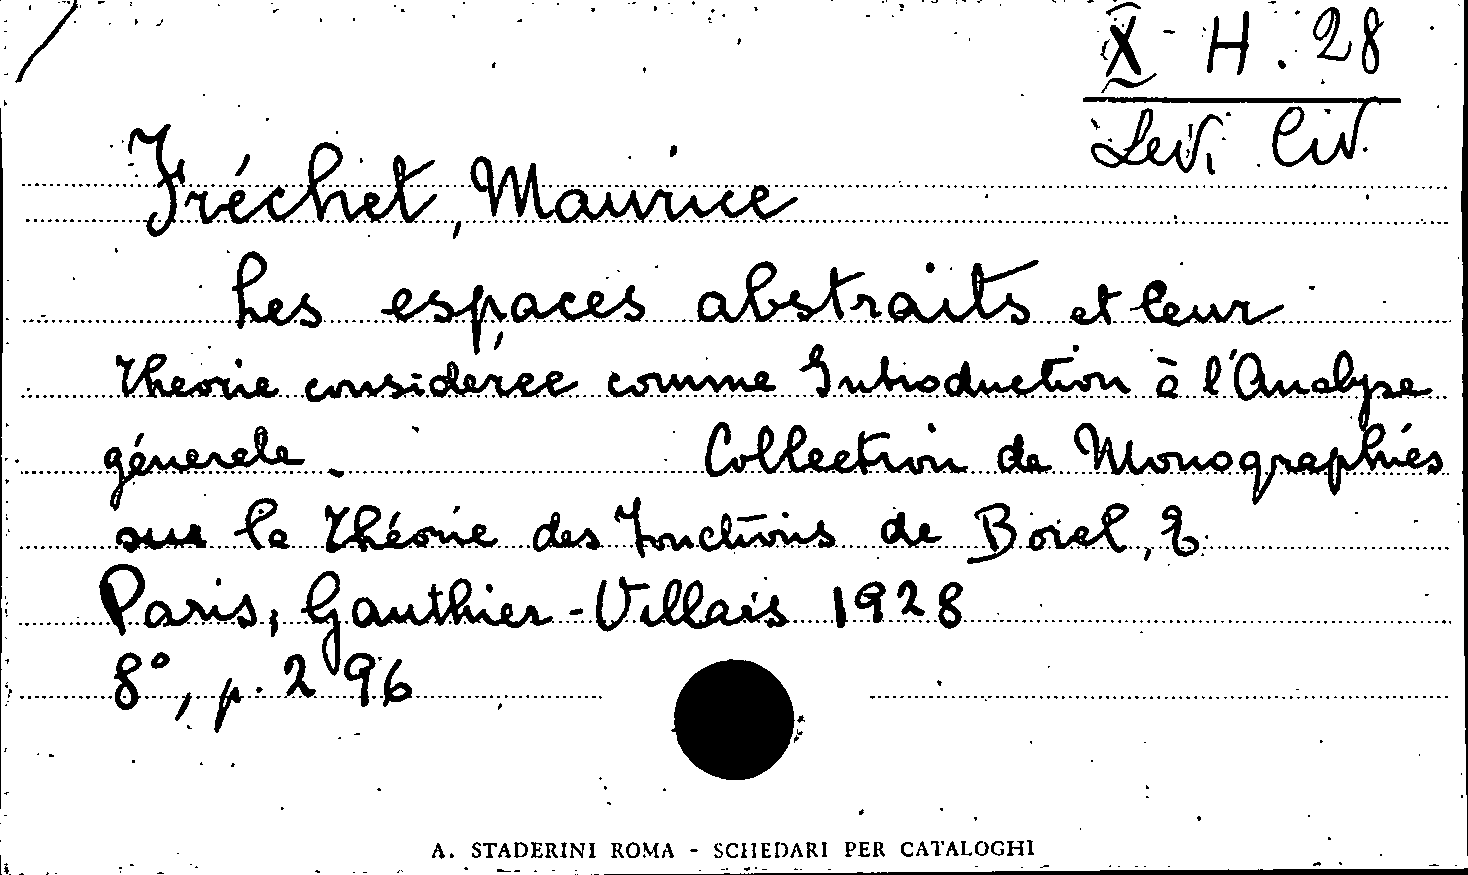 X - H. 28
Levi Civ.
Fréchet, Maurice
Les espaces abstraits et leur
theorie considérée comme Introduction à l'Analyse
génerale.
Collection de Monographies
sur la Théorie des Fonctions de Borel, E.
Paris, Gauthier-Villais 1928
8°, p. 296
A. STADERINI ROMA - SCHEDARI PER CATALOGHI